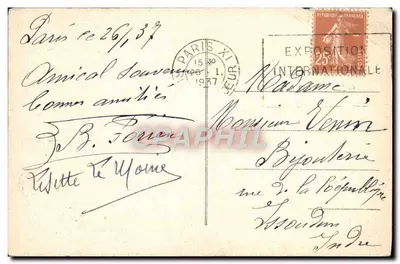 Paris ce 26/1/37
Amical souvenir
bonnes amitiés
Lisette Le Moine
PARIS XI
15
26 - I.
1937
REPUBLIQUE FRANCAISE
25
EXPOSITION
INTERNATIONALE
Madame
Monsieur
Bijouterie
rue de la République
Issoudun
Indre